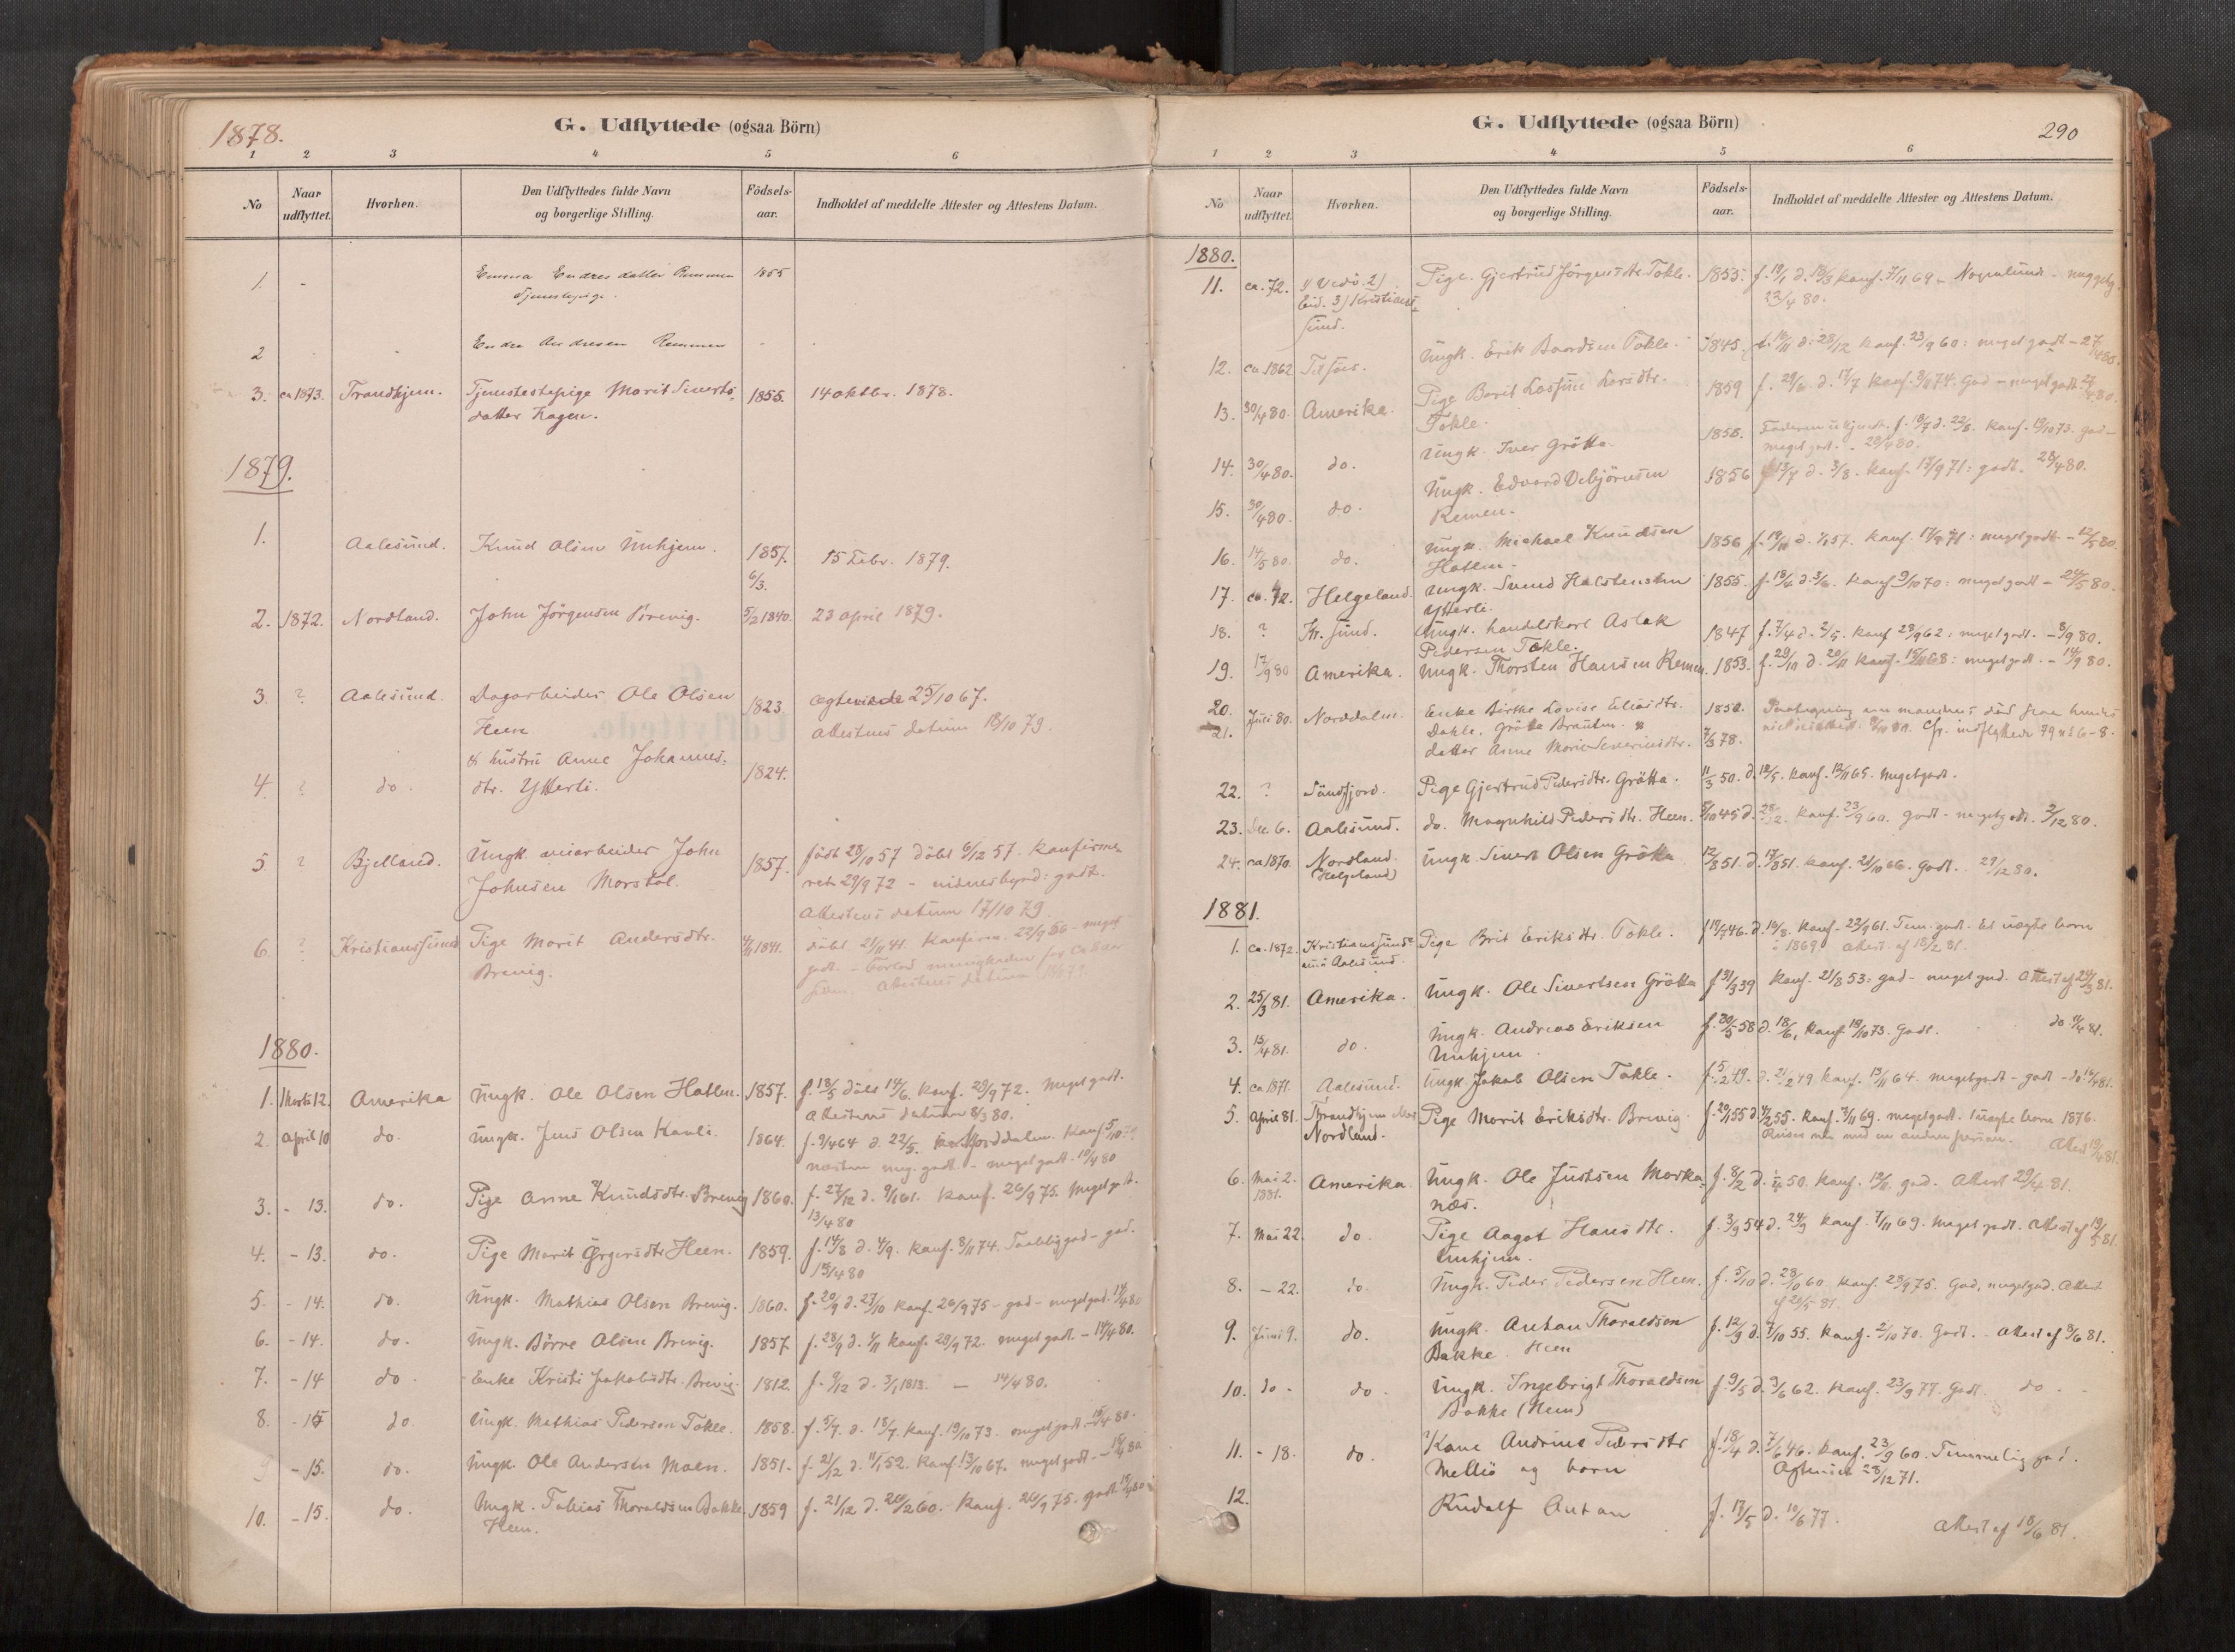 1878.
G. Udflyttede (ogsaa Börn)
1 2 3 4 5 6
No Naar udflyttet. Hvorhen. Den Udflyttedes fulde Navn og borgerlige Stilling. Födsels-aar. Indholdet af meddelte Attester og Attestens Datum.
1. - Emma Endresdatter Remmen 1855
Tjenestepige.
2 - - Endre Andresen Remmen - -
3. ca 1873. Trondhjem. Tjenestepige Marit Siverts- 1855. 14 oktbr. 1878.
datter Hagen.
1879.
1. Aalesund. Knud Olsen Unhjem. 1857. 15 Febr. 1879.
6/3.
2. 1872. Nordland. John Jörgensen Brevig. 5/2 1840. 23 april 1879.
3. ? Aalesund. Dagarbeider Ole Olsen 1823 25/10 67.
Heen Attestens datum 18/10 79.
4. ? do. & hustru Anne Johannes- 1824.
dtr. Ytterli.
5 ? Bjelland. Ungk. John 1857. födt 28/10 57 döbt 6/12 57. konfirme-
Johnsen Morstöl. ret 29/9 72 - vidnesbyrd: godt.
Attestens datum 17/10 79.
6. ? Kristianssund Pige Marit Andersdtr. 1841. döbt 21/11 41. Konfirm. 22/9 56 - meget
Brevig. godt. - Forlod menigheden for ca 8 aar
siden. Attestens datum
1880.
1. Marts 12. Amerika Ungk. Ole Olsen Hatlen. 1857. f. 18/5 döbt 14/6 konf. 29/9 72. Meget godt.
Attestens datum 8/3 80.
2. April 10 do. Ungk. Jens Olsen Kavli. 1864. f. 9/4 64 d. 22/5. Norddalen. Konf 5/10
næsten meg. godt - meget godt. 10/4 80
3. - 13. do. Pige Anne Knudsdtr. Brevig 1860. f. 27/12 d. 9/1 61. Konf. 26/9 75. Meget godt.
13/4 80
4. - 13. do. Pige Marit Heen. 1859. f. 14/8 d. 4/9. konf. 8/11 74. god.
13/4 80
5. - 14. do. Ungk. Mathias Olsen Brevig. 1860. f. 20/9 d. 27/10 konf. 26/9 75 - god - meget god. 14/4 80
6. - 14. do. Ungk. Börre Olsen Brevig. 1857 f. 28/9 d. 1/11 konf. 29/9 72. meget godt - 14/4 80.
7. - 14 do - Enke Kristi Jakobsdtr. Brevig. 1812. f. 9/12 d. 3/1 1813. - 14/4 80.
8. - 15 do. Ungk. Mathias Pedersen Tokle. 1858. f. 5/7. d. 18/7. konf. 19/10 73. meget godt. 15/4 80.
9 - 15. do. Ungk. Ole Andersen Moen. 1851. f. 21/12 d. 11/1 52. Konf. 13/10 67. meget godt. - 15/4 80
10. - 15. do. Ungk. Tobias Thoraldsen Bakke 1859 f. 21/12 d. 26/2 60. Konf. 26/9 75. godt
Heen.
G. Udflyttede (ogsaa Börn)
290
1 2 3 4 5 6
No Naar udflyttet. Hvorhen. Den Udflyttedes fulde Navn og borgerlige Stilling. Födsels-aar. Indholdet af meddelte Attester og Attestens Datum.
1880.
11. ca. 72. 1) Vedö. 2) Pige Gjertrud Jörgensdtr. Tokle. 1855. f. 19/1 d. 18/3 konf. 7/11 69 -
3) Kristians- 23/4 80.
sund.
12. ca 1862 Ungk. Erik Baardsen Tokle. 1845. f. d. 28/12 konf. 23/9 60: meget godt - 27/4 80.
13. 30/4 80. Amerika. Pige Berit Larsdtr. 1859 f. 29/6. d. 17/7 konf. 8/11 74. God - meget godt. 27/4 80.
Tokle.
14. 30/4 80. do. Ungk. Iver Grötta. 1858. f. 18/7 d. 22/8. konf. 19/10 73. god -
meget god. - 28/4 80.
15. 30/4 80. do. Ungk. Edvard Debjörnsen 1856 f. 13/7 d. 3/8. konf. 17/9 71: godt. 28/4 80.
Remen.
16. 14/5 80. do. Ungk. Michael Knudsen 1856 konf. 17/9 71: meget godt - 12/5 80.
Hatlen.
17. ca. 72. Helgeland. Ungk. Svend Halstensen 1855. f. 18/4 d. 3/6. konf 9/10 70: meget godt - 24/5 80.
Ytterli.
18. ? Kr. sund. Ungk. handelskarl Aslak 1847 f. 7/4 d. 2/5. konf 28/9 62: meget godt. - 8/9 80.
Pedersen Tokle.
19. 17/9 80 Amerika. Ungk. Thorsten Hansen Remen. 1853. f. 29/10 d. 20/11 konf. 15/11 68: meget godt. - 14/9 80.
20. Juli 80. Norddalen. Enke Birthe Lovise Eliasdtr. 1850. om mandens död
21. Dahle. Grötta & 7/3 78. Cfr. indflyttede 79 no 6-8.
datter Anne Marie Severinsdtr.
22. ? Sundfjord. Pige Gjertrud Pedersdtr. Grötta. 11/3 50. d. 12/5. konf. 12/11 65. Meget godt.
23. Dec. 6. Aalesund. do. Magnhild Pedersdtr. Heen. 45 d. 28/12. konf. 23/9 60. godt - meget godt. 2/12 80.
24. ca 1870. Nordland Ungk. Sivert Olsen Grötta 12/8 51. d. 17/8 51. konf. 21/10 66. Godt. 29/12 80.
(Helgeland)
1881.
1. ca. 1872. Kristianssund Pige Brit Eriksdtr. Tokle. f. 19/7 46. d. 16/8. konf. 22/9 61. Tem. godt. Et uægte barn
nu i Aalesund. i 1869 Attest af 18/2 81.
2. 25/3 81. Amerika. Ungk. Ole Sivertsen Grötta f 31/3 39 konf. 21/8 53: god - meget god. Attest af 24/3 81.
3. 15/4 81. do. Ungk. Andreas Eriksen f. 30/5 58 d. 18/6, konf 19/10 73. Godt. do 9/4 81.
Unhjem.
4. ca 1871. Aalesund. Ungk. Jakob Olsen Tokle. f. 5/2 49. d. 21/2 49 konf. 13/11 64. meget godt - godt - do 16/4 81.
5. April 81. Trondhjem eller Pige Marit Eriksdtr. Brevig f. 29/1 55 d. 4/2 55. konf. 7/11 69. meget godt. 1 uægte barn 1876.
Nordland. Reiser nu med en anden person. Attest 19/4 81.
6. Mai 2. Amerika Ungk. Ole Justsen Morka- f. 8/2 d. 1/4 50. konf. god. Attest 29/4 81.
1881. næs.
7. Mai 22. do. Pige Aagot Hansdtr. f. 3/9 54 d. 24/9 konf. 7/11 69. Meget godt. Attest af 19/5 81.
Unhjem.
8. - 22. do. Ungk. Peder Pedersen Heen. f. 5/10 d. 28/10 60. konf. 28/9 75. God, meget god. Attest
af 20/5 81.
9. Juni 9. do. Ungk. Anton Thoraldsen f. 12/9 d. 7/10 55. konf. 2/10 70. Godt. - Attest af 8/6 81.
Bakke. Heen
10. do - do. Ungk. Ingebrigt Thoraldsen f. 9/5 d. 9/6 62. Konf. 23/9 77. Godt. do. -
Bakke (Heen)
11. - 18. do Kone Andrine Pedersdtr f. 18/4 d. 7/6 46. konf. 23/9 60. Temmelig god.
Mellie og barn 28/12 71.
12. Rudolf Anton f. 17/5 d. 10/6 77. Attest af 18/6 81.